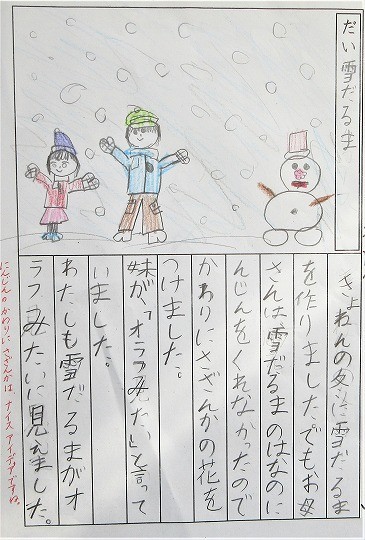 だい 雪だるま
きょねんの冬に雪だるま
を作りました。でもお母
さんは雪だるまのはなのに
んじんをくれなかったので
かわりにさざんかの花を
つけました。
妹が、「オラフみたい」と言って
いました。
わたしも雪だるまがオ
ラフみたいに見えました。
にんじんのかわりにさざんかは、ナイスアイデアですね。